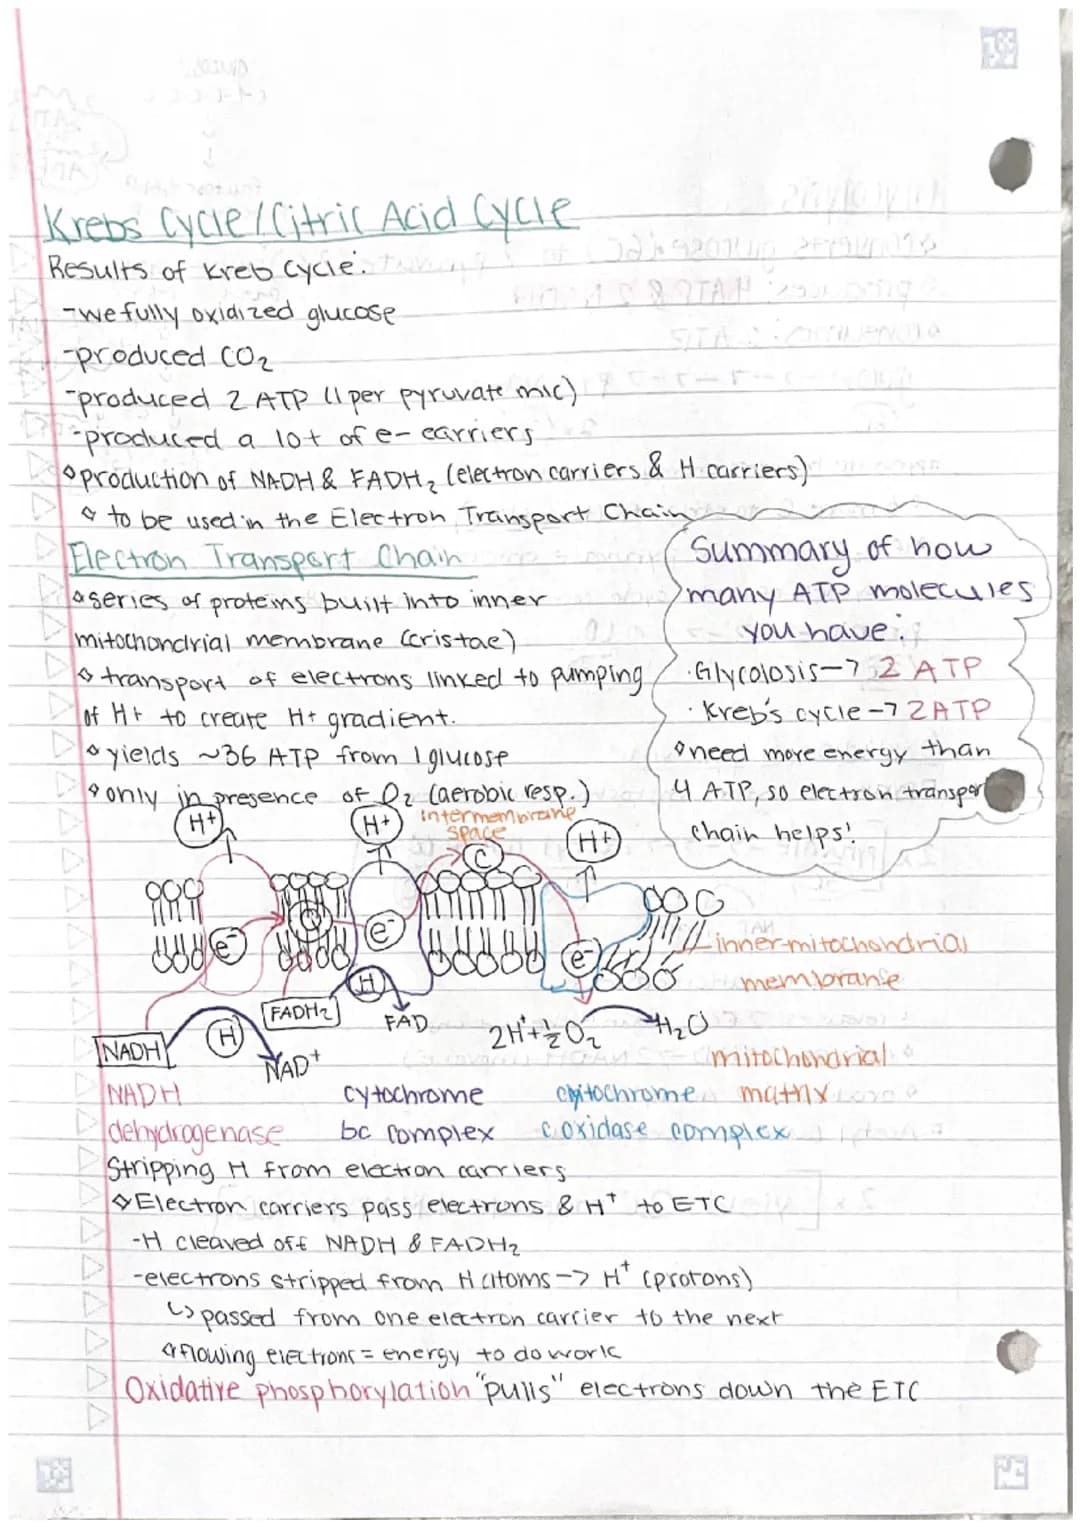 Krebs Cycle/Citric Acid Cycle
Results of Kreb Cycle:
-we fully oxidized glucose
-produced CO₂
-produced 2 ATP (1 per pyruvate mlc)
-produced a lot of e- carriers
production of NADH & FADH₂ (electron carriers & H carriers)
to be used in the Electron Transport Chain
Electron Transport Chain
series of proteins built into inner
mitochondrial membrane (cristae)
transport of electrons linked to pumping
of H+ to create H+ gradient.
yields ~36 ATP from 1 glucose
only in presence of O₂ (aerobic resp.)
Summary of how
many ATP molecules
you have:
·Glycolosis-> 2 ATP
·Kreb's cycle -> 2ATP
need more energy than
4 ATP, so electron transport
chain helps!
H+
H+
intermembrane
space
C
H+
Q
e-
e-
e-
inner-mitochondrial
membrane
NADH
H
NAD+
FADH₂
H
FAD
2H⁺+½O₂
H₂O
mitochondrial
matrix
NADH
dehydrogenase
cytochrome
bc complex
cytochrome
c oxidase complex
Stripping H from electron carriers
Electron carriers pass electrons & H⁺ to ETC
-H cleaved off NADH & FADH₂
-electrons stripped from H atoms-> H⁺ (protons)
↳ passed from one electron carrier to the next
flowing electrons = energy to do work
Oxidative phosphorylation "pulls" electrons down the ETC